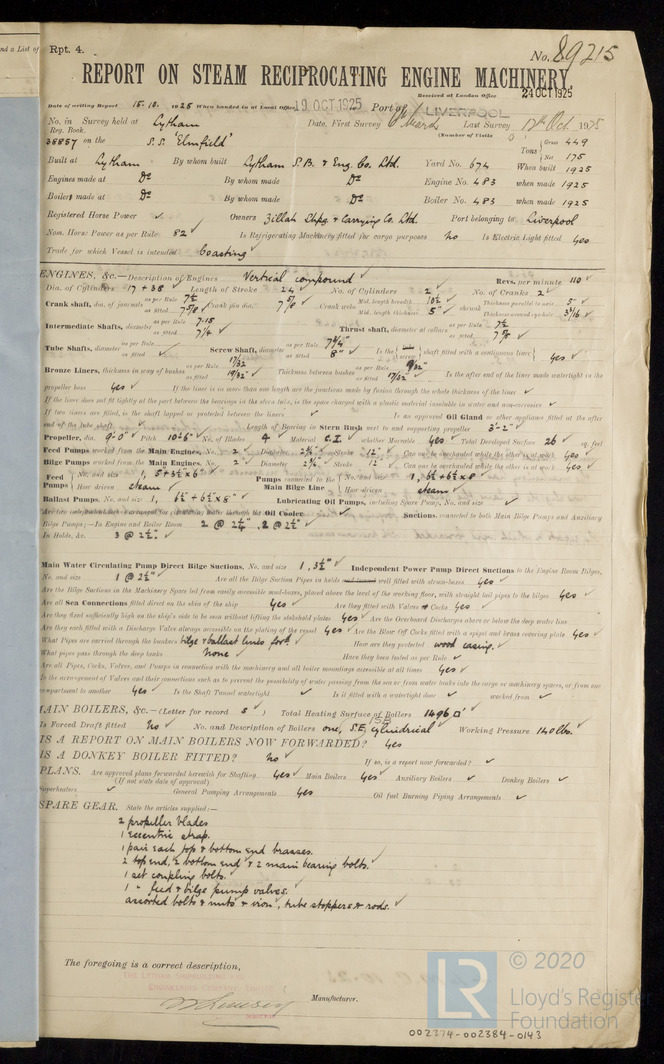 nd a List of
Rpt. 4.
No. 89215
REPORT ON STEAM RECIPROCATING ENGINE MACHINERY.
Received at London Office 24 OCT 1925
Date of writing Report 15.10. 1925 When handed in at Local Office 19 OCT 1925 Port of LIVERPOOL
No. in Survey held at Lytham Date, First Survey Last Survey 12th Oct 1925
Reg. Book. (Number of Visits
38857 on the S.S. 'Elmfield' Tons Gross 449 Net 175
Built at Lytham By whom built Lytham S.B. & Eng. Co. Ltd. Yard No. 674 When built 1925
Engines made at Do By whom made Do Engine No. 483 when made 1925
Boilers made at Do By whom made Do Boiler No. 483 when made 1925
Registered Horse Power ✓ Owners Zillah Shpg. & Carrying Co. Ltd. Port belonging to Liverpool
Nom. Horse Power as per Rule 82 ✓ Is Refrigerating Machinery fitted for cargo purposes No Is Electric Light fitted Yes
Trade for which Vessel is intended Coasting ✓
ENGINES, &c.—Description of Engines Vertical compound ✓ Revs. per minute 110 ✓
Dia. of Cylinders 17 + 38 ✓ Length of Stroke 24 ✓ No. of Cylinders 2 ✓ No. of Cranks 2 ✓
Crank shaft, dia. of journals as per Rule 7½ as fitted 7⅝ Crank pin dia. 7⅝ Crank webs Mid. length breadth 10½ Mid. length thickness 5" shrunk Thickness parallel to axis 5" Thickness around eye-hole 3 5/16
Intermediate Shafts, diameter as per Rule 7.15 as fitted 7¼ Thrust shaft, diameter at collars as per Rule 7½ as fitted 7⅝
Tube Shafts, diameter as per Rule as fitted Screw Shaft, diameter as per Rule as fitted 8" Is the shaft fitted with a continuous liner Yes ✓
Bronze Liners, thickness in way of bushes as per Rule 17/32 as fitted 19/32" Thickness between bushes as per Rule as fitted 17/32 Is the after end of the liner made watertight in the
propeller boss Yes ✓ If the liner is in more than one length are the junctions made by fusion through the whole thickness of the liner ✓
If the liner does not fit tightly at the part between the bearings in the stern tube, is the space charged with a plastic material insoluble in water and non-corrosive ✓
If two liners are fitted, is the shaft lapped or protected between the liners ✓ Is an approved Oil Gland or other appliance fitted at the after
end of the tube shaft ✓ Length of Bearing in Stern Bush next to and supporting propeller 3'-2"
Propeller, dia. 9'-0" Pitch 10'-6" No. of Blades 4 Material C.I. whether Moveable Yes Total Developed Surface 26 sq. feet
Feed Pumps worked from the Main Engines, No. 2 Diameter Stroke 12" Can one be overhauled while the other is at work Yes
Bilge Pumps worked from the Main Engines, No. 2 Diameter Stroke 12 Can one be overhauled while the other is at work Yes
Feed Pumps No. and size 1, 5 + 3½ x 6 How driven steam Pumps connected to the Main Bilge Line No. and size 1, 6½ + 6½ x 8 How driven steam
Ballast Pumps, No. and size 1, 6½ + 6½ x 8" Lubricating Oil Pumps, including Spare Pump, No. and size ✓
Suctions, connected to both Main Bilge Pumps and Auxiliary
Bilge Pumps;—In Engine and Boiler Room 2 @ 2¼", 2 @ 2½"
In Holds, &c. 3 @ 2½" ✓
Main Water Circulating Pump Direct Bilge Suctions, No. and size 1, 3½" ✓ Independent Power Pump Direct Suctions to the Engine Room Bilges,
No. and size 1 @ 2½" Are all the Bilge Suction Pipes in holds well fitted with strum-boxes Yes ✓
Are the Bilge Suctions in the Machinery Space led from easily accessible mud-boxes, placed above the level of the working floor, with straight tail pipes to the bilges Yes ✓
Are all Sea Connections fitted direct on the skin of the ship Yes ✓ Are they fitted with Valves or Cocks Yes ✓
Are they fixed sufficiently high on the ship's side to be seen without lifting the stokehold plates Yes ✓ Are the Overboard Discharges above or below the deep water line
Are they each fitted with a Discharge Valve always accessible on the plating of the vessel Yes ✓ Are the Blow Off Cocks fitted with a spigot and brass covering plate Yes ✓
What Pipes are carried through the bunkers bilge & ballast lines forwd How are they protected wood casing. ✓
What pipes pass through the deep tanks None ✓ Have they been tested as per Rule ✓
Are all Pipes, Cocks, Valves, and Pumps in connection with the machinery and all boiler mountings accessible at all times Yes ✓
Is the arrangement of Valves and their connections such as to prevent the possibility of water passing from the sea or from water tanks into the cargo or machinery spaces, or from one
compartment to another Yes ✓ Is the Shaft Tunnel watertight ✓ Is it fitted with a watertight door ✓ worked from ✓
MAIN BOILERS, &c.—(Letter for record S ✓) Total Heating Surface of Boilers 1496 □' ✓
Is Forced Draft fitted No ✓ No. and Description of Boilers one, S.E. cylindrical Working Pressure 140 lbs. ✓
IS A REPORT ON MAIN BOILERS NOW FORWARDED? Yes
IS A DONKEY BOILER FITTED? No ✓ If so, is a report now forwarded? ✓
PLANS. Are approved plans forwarded herewith for Shafting Yes ✓ Main Boilers Yes ✓ Auxiliary Boilers ✓ Donkey Boilers ✓
(If not state date of approval)
Superheaters ✓ General Pumping Arrangements Yes Oil fuel Burning Piping Arrangements ✓
SPARE GEAR. State the articles supplied:—
2 propeller blades
1 eccentric strap.
1 pair each top & bottom end brasses. ✓
2 top end, 2 bottom end & 2 main bearing bolts. ✓
1 set coupling bolts. ✓
1 " feed & bilge pump valves. ✓
assorted bolts & nuts & iron, tube stoppers & rods. ✓
The foregoing is a correct description,
THE LYTHAM SHIPBUILDING AND
ENGINEERING COMPANY, LIMITED
Manufacturer.
© 2020
Lloyd's Register
Foundation
002374-002384-0143